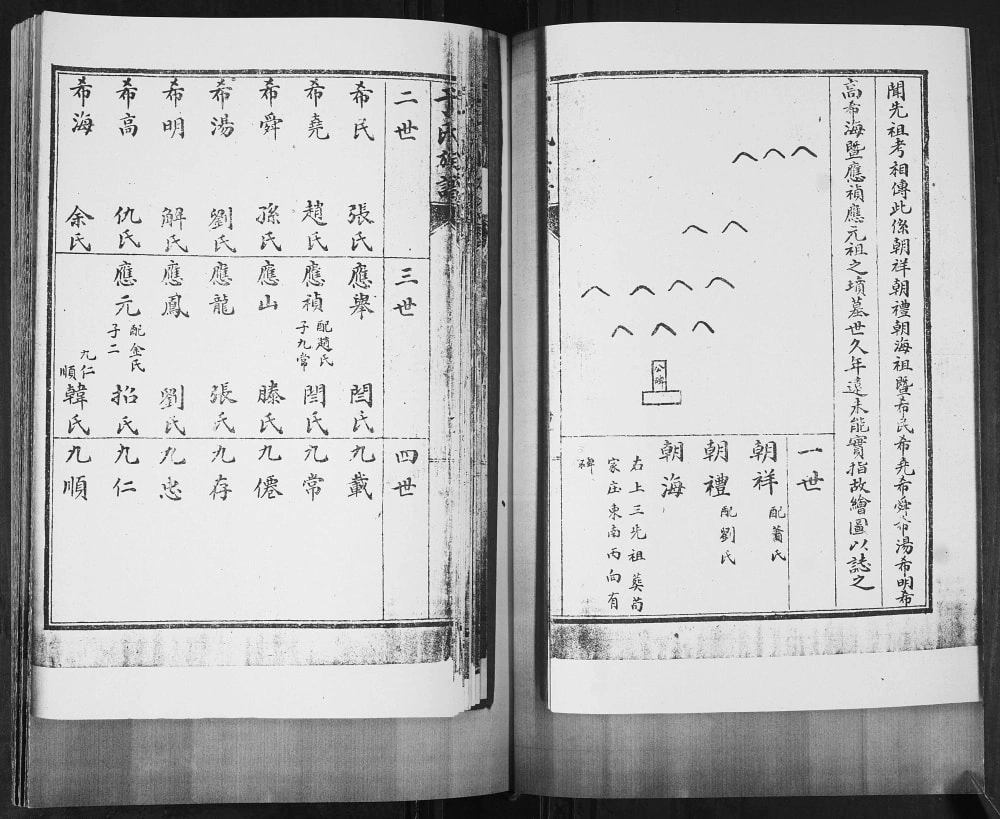 聞先祖考相傳此係朝祥朝禮朝海祖暨希民希堯希舜希湯希明希
高希海暨應禎應元祖之墳墓世久年遠未能實指故繪圖以誌之
公碑
一世
朝祥 配蕭氏
朝禮 配劉氏
朝海
右上三先祖葬苟
家庄東南丙向有
碑
于氏族譜
二世
希民 張氏
希堯 趙氏
希舜 孫氏
希湯 劉氏
希明 解氏
希高 仇氏
希海 余氏
三世
應舉 閆氏
應禎 配趙氏 子九常 閆氏
應山 滕氏
應龍 張氏
應鳳 劉氏
應元 配金氏 子二 招氏
九仁
順 韓氏
四世
九載
九常
九僊
九存
九忠
九仁
九順